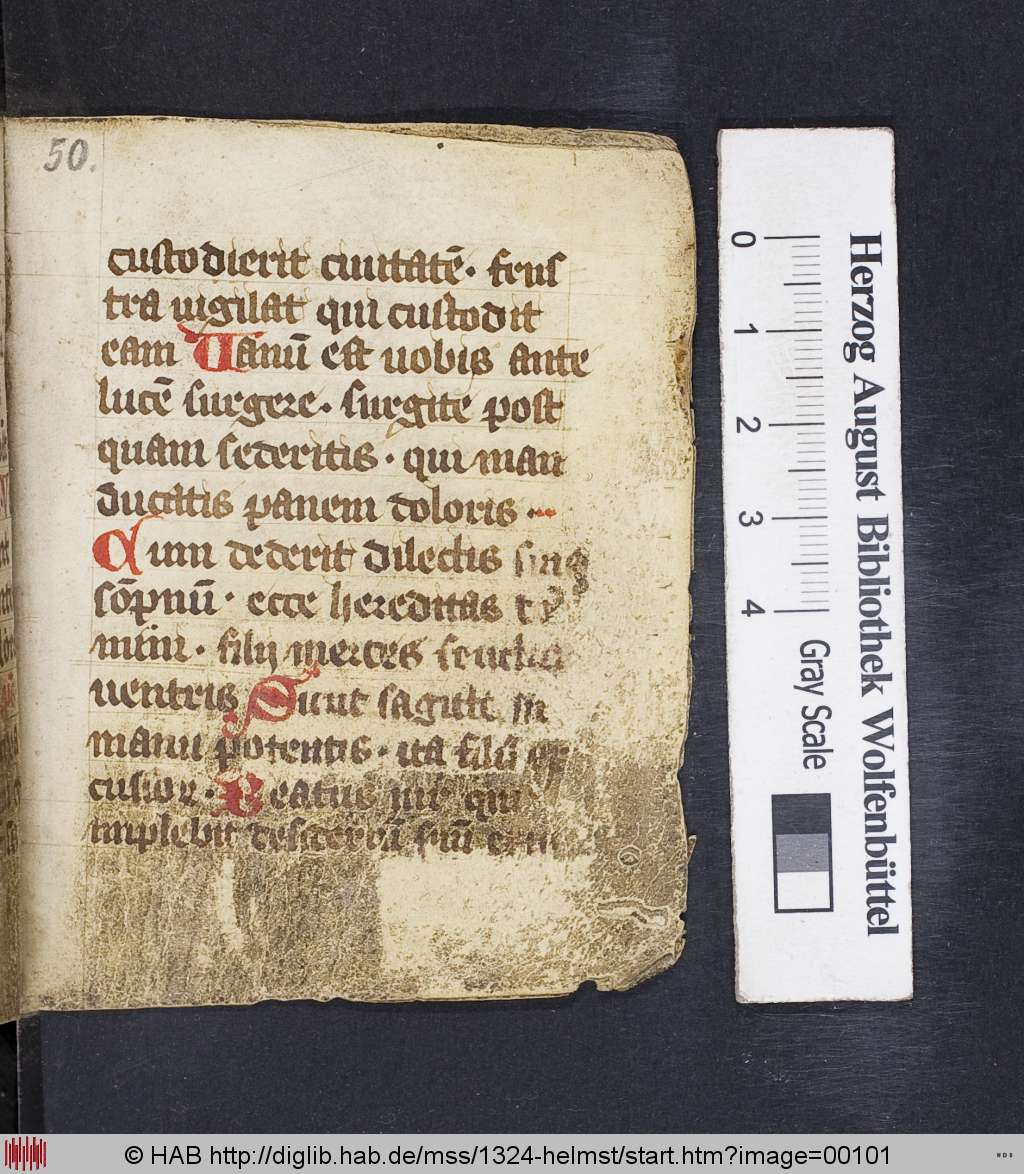 50.
custodierit ciuitatē. frus
tra uigilat qui custodit
eam Uanū est uobis ante
lucē surgere. surgite post
quam sederitis. qui man
ducatis panem doloris.
Cum dederit dilectis
sōpnū. ecce hereditas
filij merces
ventris Sicut sagitte in
manu potentis. ita filii
Beatus uir qui
implebit
Herzog August Bibliothek Wolfenbüttel
0 1 2 3 4
Gray Scale
© HAB http://diglib.hab.de/mss/1324-helmst/start.htm?image=00101